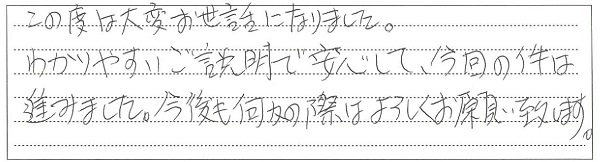 この度は大変お世話になりました。
わかりやすいご説明で安心して、今回の件は
進みました。今後も何かの際はよろしくお願い致します。